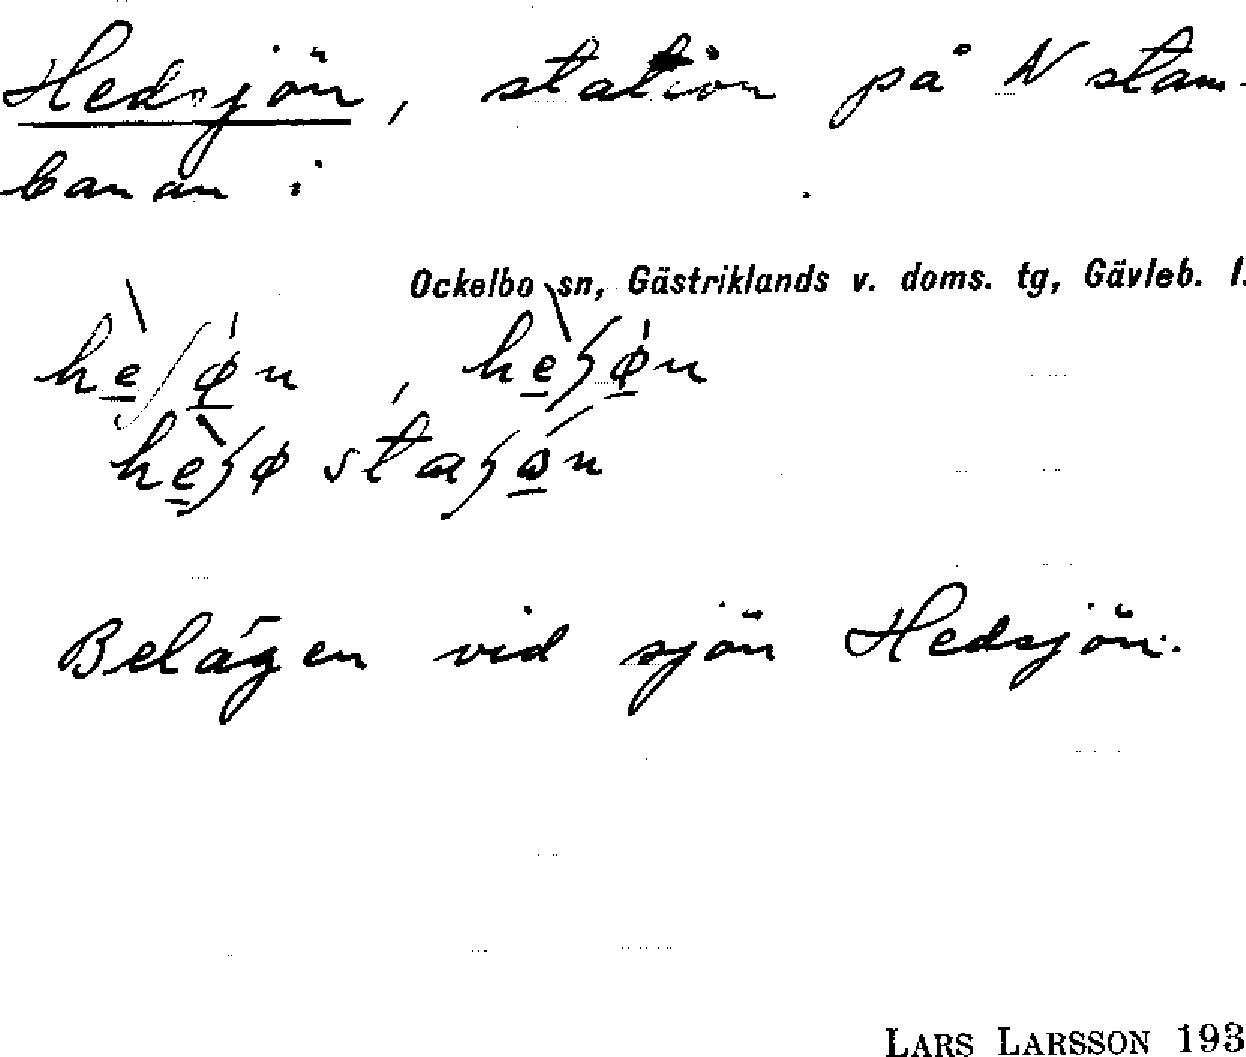 Hedsjön, station på N stam-
banan i
Ockelbo sn, Gästriklands v. doms. tg, Gävleb. l.
Belägen vid sjön Hedsjön.
LARS LARSSON 193